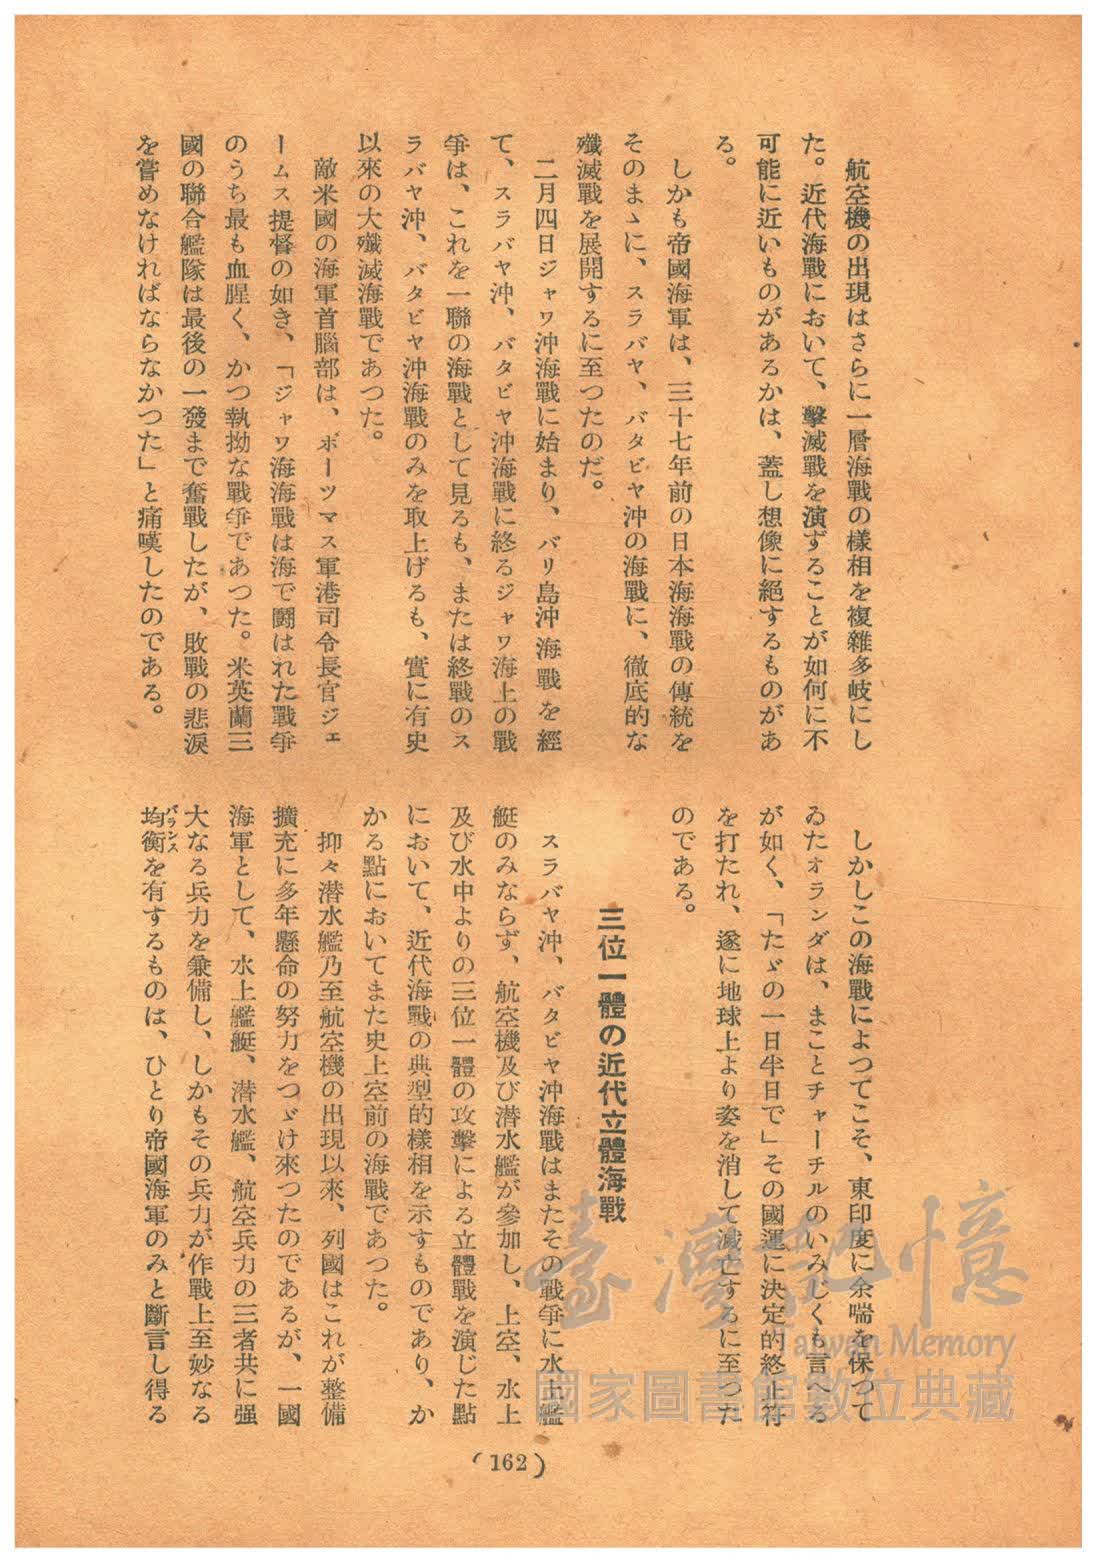 航空機の出現はさらに一層海戰の樣相を複雜多岐にし
た。近代海戰において、擊滅戰を演ずることが如何に不
可能に近いものがあるかは、蓋し想像に絕するものがあ
る。
しかも帝國海軍は、三十七年前の日本海海戰の傳統を
そのまゝに、スラバヤ、バタビヤ沖の海戰に、徹底的な
殲滅戰を展開するに至つたのだ。
二月四日ジャワ沖海戰に始まり、バリ島沖海戰を經
て、スラバヤ沖、バタビヤ沖海戰に終るジャワ海上の戰
爭は、これを一聯の海戰として見るも、または終戰のス
ラバヤ沖、バタビヤ沖海戰のみを取上げるも、實に有史
以來の大殲滅海戰であつた。
敵米國の海軍首腦部は、ポーツマス軍港司令長官ジェ
ームス提督の如き、「ジャワ海海戰は海で鬪はれた戰爭
のうち最も血腥く、かつ執拗な戰爭であつた。米英蘭三
國の聯合艦隊は最後の一發まで奮戰したが、敗戰の悲淚
を嘗めなければならなかつた」と痛嘆したのである。
しかしこの海戰によつてこそ、東印度に余喘を保つて
ゐたオランダは、まことチャーチルのいみじくも言へる
が如く、「たゞの一日半日で」その國運に決定的終止符
を打たれ、遂に地球上より姿を消して滅亡するに至つた
のである。
三位一體の近代立體海戰
スラバヤ沖、バタビヤ沖海戰はまたその戰爭に水上艦
艇のみならず、航空機及び潜水艦が參加し、上空、水上
及び水中よりの三位一體の攻擊による立體戰を演じた點
において、近代海戰の典型的樣相を示すものであり、か
かる點においてまた史上空前の海戰であつた。
抑々潜水艦乃至航空機の出現以來、列國はこれが整備
擴充に多年懸命の努力をつゞけ來つたのであるが、一國
海軍として、水上艦艇、潜水艦、航空兵力の三者共に强
大なる兵力を兼備し、しかもその兵力が作戰上至妙なる
均衡を有するものは、ひとり帝國海軍のみと斷言し得る
バランス
(162)
臺灣記憶
Taiwan Memory
國家圖書館數位典藏